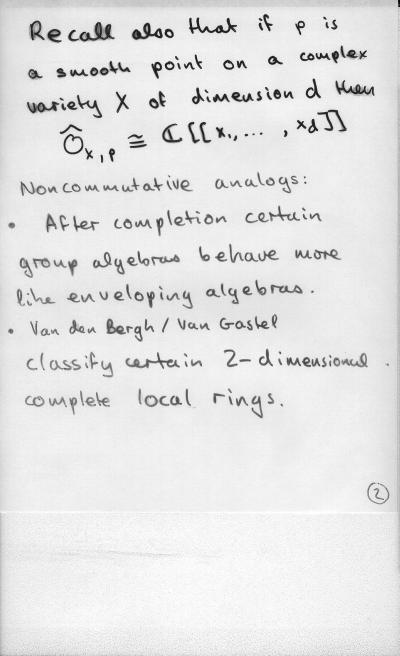 Recall also that if p is
a smooth point on a complex
variety X of dimension d then
Ô_{X,p} ≅ ℂ[[x₁,... , x_d]]
Noncommutative analogs:
• After completion certain
group algebras behave more
like enveloping algebras.
• Van den Bergh / Van Gastel
classify certain 2-dimensional
complete local rings.
2